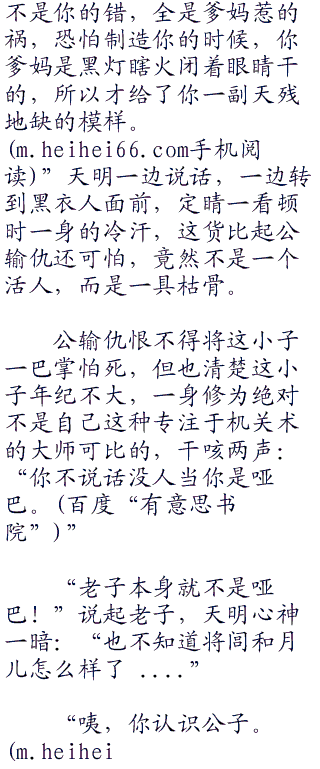 不是你的错，全是爹妈惹的
祸，恐怕制造你的时候，你
爹妈是黑灯瞎火闭着眼睛干
的，所以才给了你一副天残
地缺的模样。
(m.heihei66.com手机阅
读)”天明一边说话，一边转
到黑衣人面前，定睛一看顿
时一身的冷汗，这货比起公
输仇还可怕，竟然不是一个
活人，而是一具枯骨。
公输仇恨不得将这小子
一巴掌怕死，但也清楚这小
子年纪不大，一身修为绝对
不是自己这种专注于机关术
的大师可比的，干咳两声：
“你不说话没人当你是哑
巴。(百度“有意思书
院”)”
“老子本身就不是哑
巴！”说起老子，天明心神
一暗：“也不知道将闾和月
儿怎么样了 ....”
“咦，你认识公子。
(m.heihei